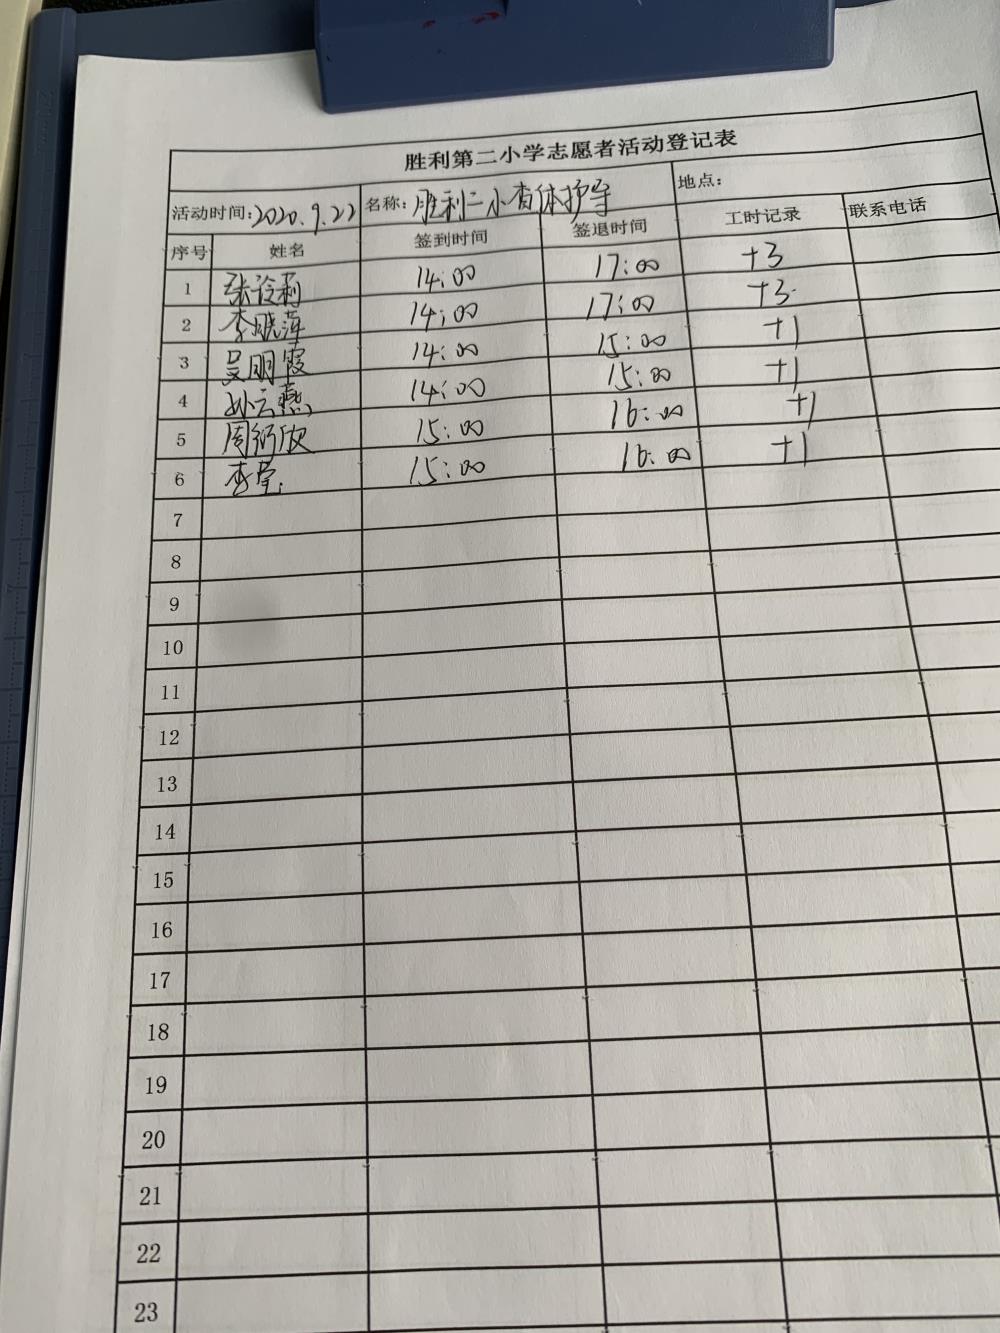 胜利第二小学志愿者活动登记表
活动时间: 2020.9.22 名称: 胜利二小查体护导 地点:
序号 姓名 签到时间 签退时间 工时记录 联系电话
1 张玲莉 14:00 17:00 +3
2 李晓萍 14:00 17:00 +3
3 吴明霞 14:00 15:00 +1
4 孙云燕 14:00 15:00 +1
5 周 欣 15:00 16:00 +1
6 李莹 15:00 16:00 +1
7
8
9
10
11
12
13
14
15
16
17
18
19
20
21
22
23